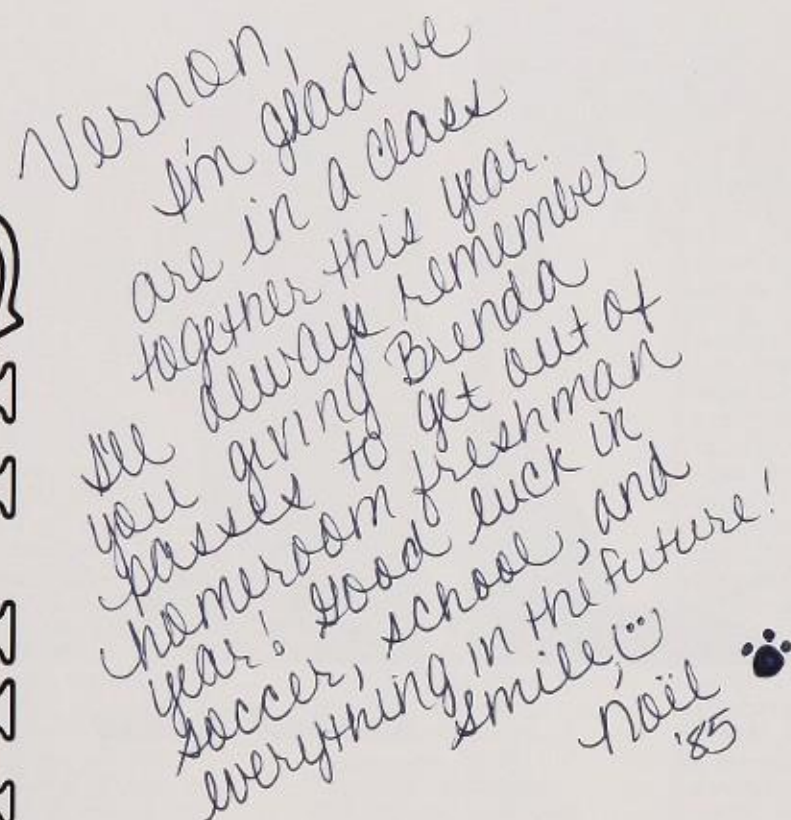 Vernon,
I'm glad we
are in a class
together this year.
I'll always remember
you giving Brenda
passes to get out of
homeroom freshman
year! Good luck in
soccer, school, and
everything in the future!
Smile, 
Noël
'85